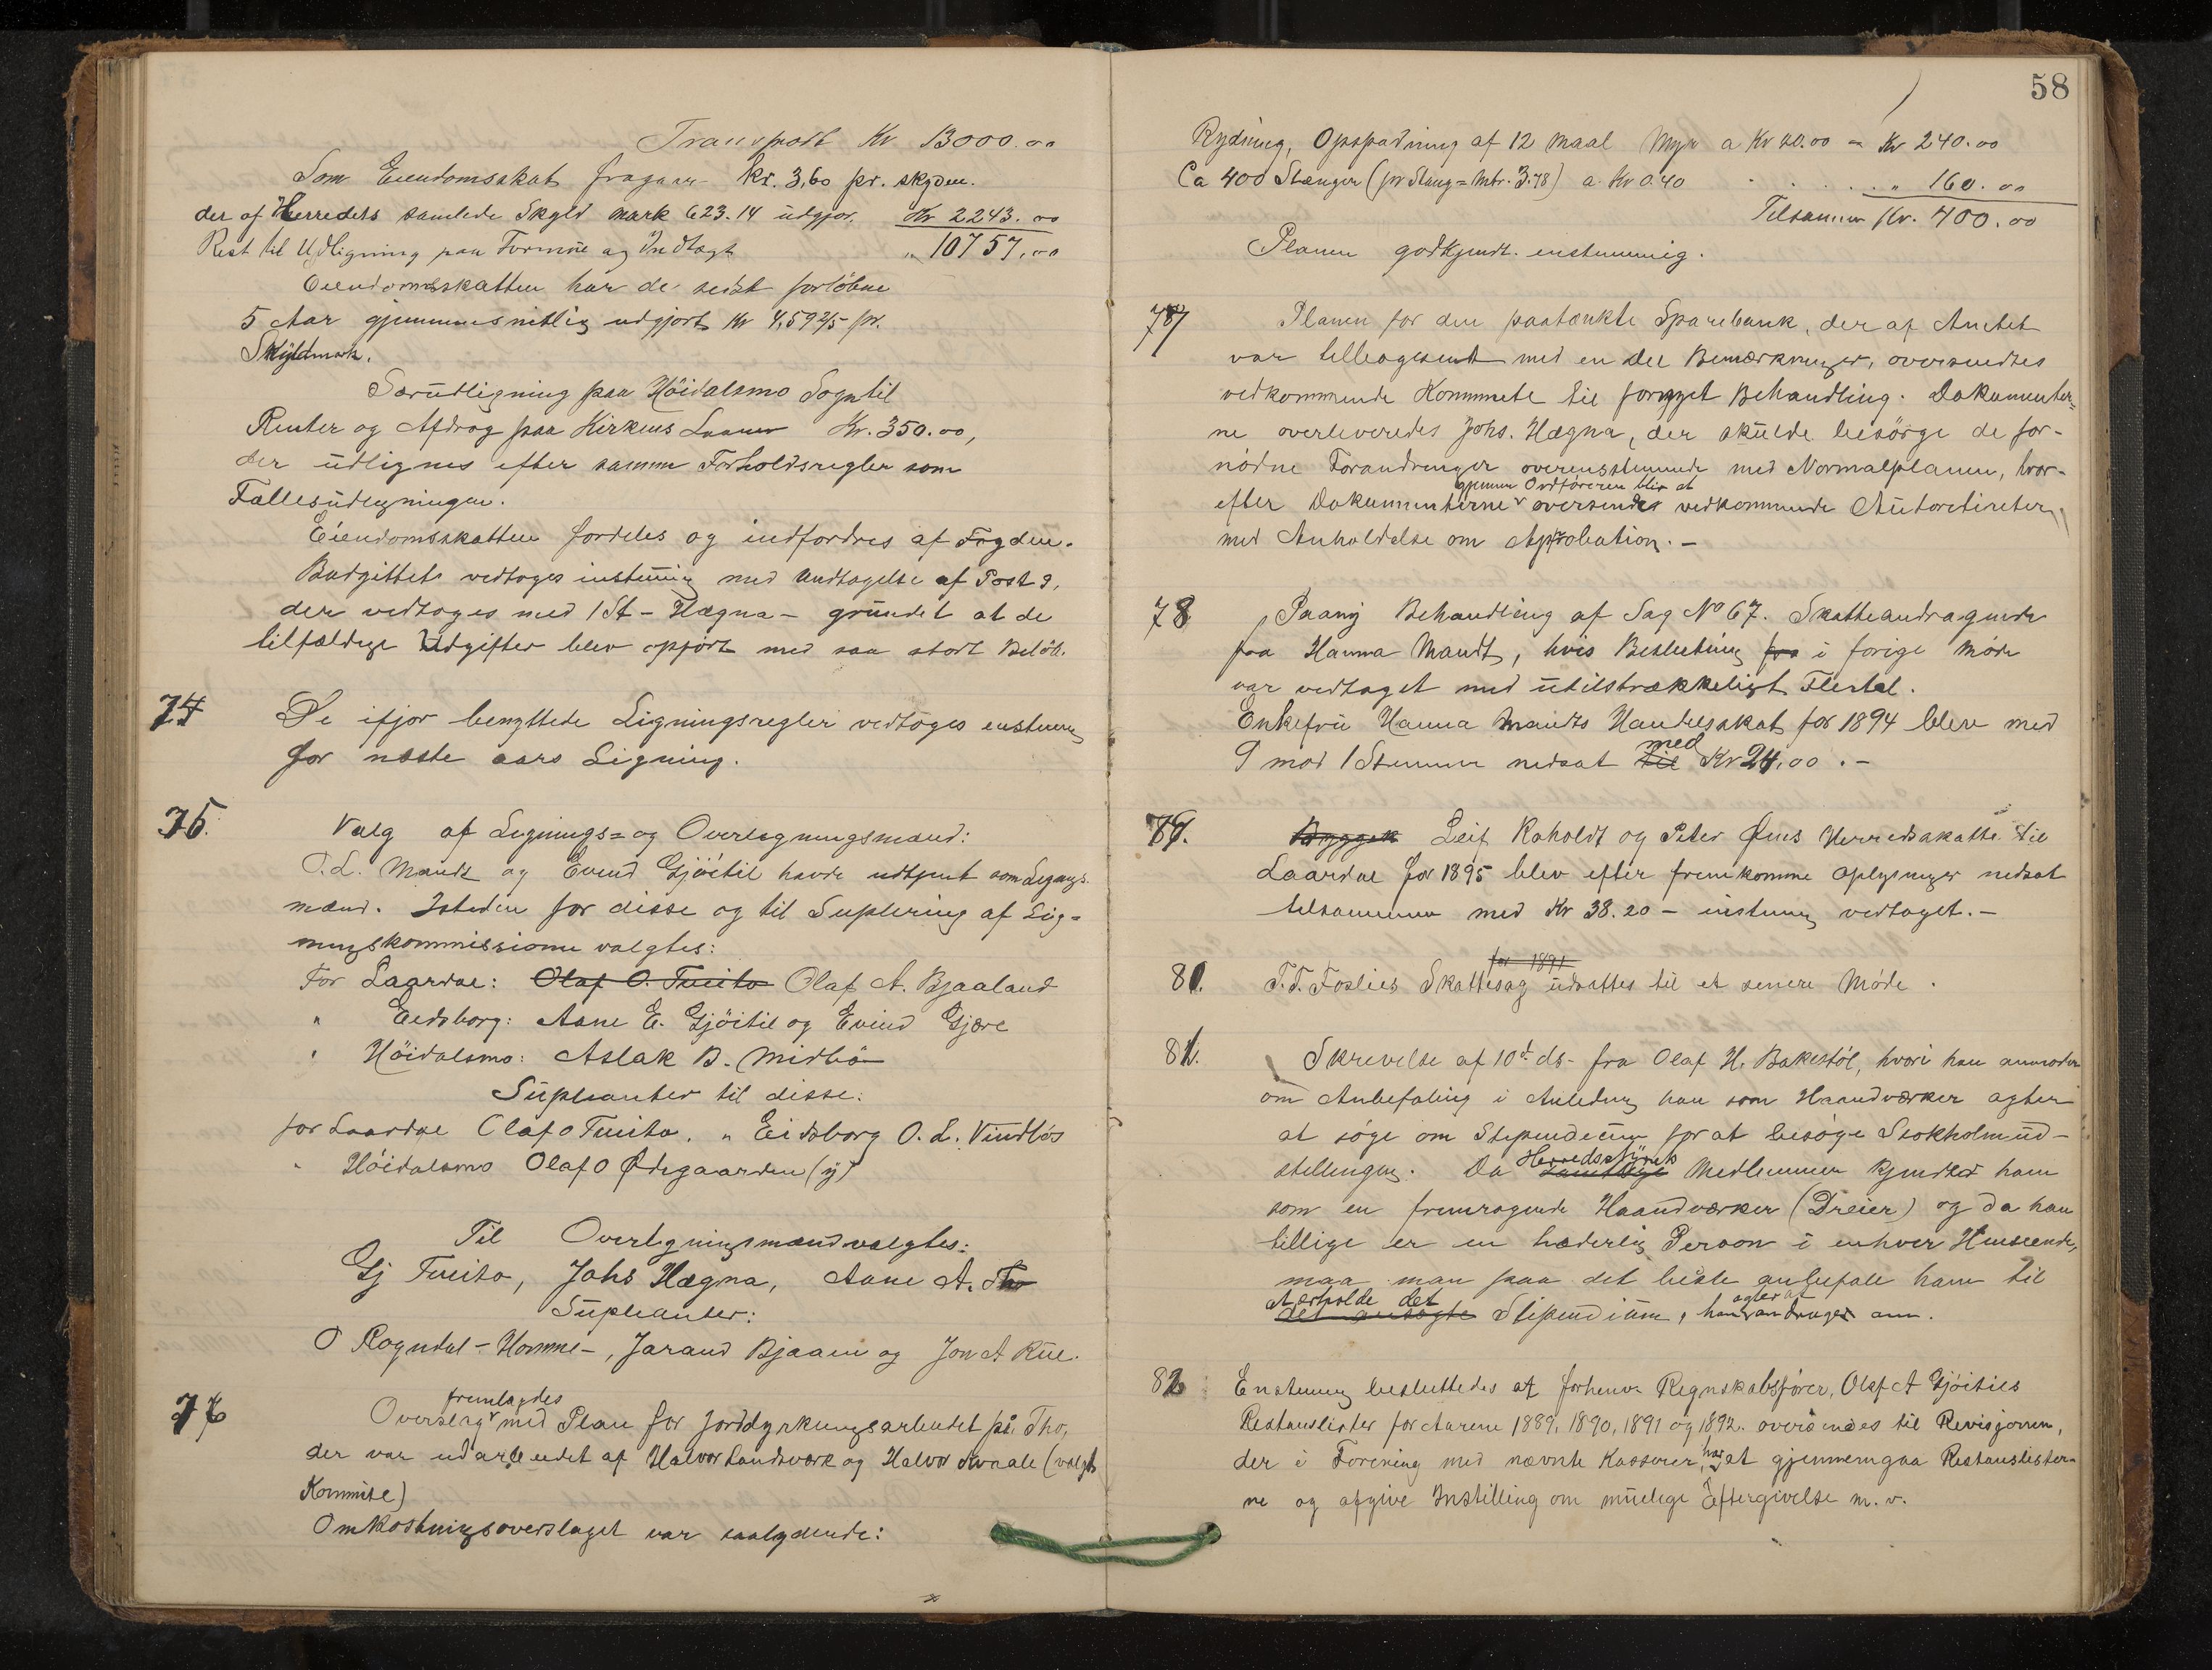 Transport Kr 13000.00
Som Eiendomsskat fragaar kr. 3,60 pr. skyldm.
der af Herredets samlede Skyld mark 623.14 udgjør. Kr 2243.00
Rest til Udligning paa Formue og Indtægt " 10757.00
Eiendomsskatten har de sidst forløbne
5 Aar gjennemsnitlig udgjort Kr 4,59 2/5 pr.
Skyldmark.
Særudligning paa Høidalsmo Sogn til
Renter og Afdrag paa Kirkens Laaner Kr. 350.00,
der udlignes efter samme Forholdsregler som
Fællesudligningen.
Eiendomsskatten fordeles og indfordres af Fogden.
Budgittet vedtoges enstemig med Undtagelse af Post 9,
der vedtoges med 1 St - Hægna - grundet at de
tilfældige Udgifter blev opført med saa stort Beløb.
74 De ifjor benyttede Ligningsregler vedtoges enstemig
for næste aars Ligning.
75. Valg af Lignings= og Overligningsmænd:
O.L. Mandt og Evind Gjøitil havde udtjent som Ligngs.
mænd. Isteden for disse og til Suplering af Lig=
ningskommissionen valgtes:
For Laardal: Olaf O. Tveito Olaf A. Bjaaland
" Eidsborg: Aane E. Gjøitil og Evind Gjære
" Høidalsmo: Aslak B. Midbø
Supleanter til disse:
for Laardal Olaf O Tveito. " Eidsborg O.L. Vindløs
" Høidalsmo Olaf O Ødegaarden (y)
Til Overligningsmænd valgtes:
Gj Tveito, Johs Hægna, Aane A. Tho
Supleanter:
O Rogndal - Homme -, Jarand Bjaaen og Jon A Rue.
fremlagdes
76 Overslag med Plan for Jorddyrkningsarbeidet på Tho,
der var udarbeidet af Halvor Landsværk og Halvor Kvaale (valgt
Kommite)
Omkostningsoverslaget var saalydende:
58
Rydning, Opspadning af 12 Maal Myr a Kr 20.00 = Kr 240.00
Ca 400 Stænger (pr Stang = Mtr. 3.78) a Kr 0.40 . . . . . " 160.00
Tilsammen Kr. 400.00
Planen godkjendt enstemmig.
77 Planen for den paatænkte Sparebank, der af Amtet
var tilbagesent med en Del Bemærkninger, oversendtes
vedkommende Kommite til fornyet Behandling. Dokumenter=
ne overleveredes Johs. Hægna, der skulde besørge de for-
nødne Forandringer overensstemmende med Normalplanen, hvor-
gjennem Ordføreren blir at
efter Dokumenterne oversendes vedkommende Autoriteter,
med Anholdelse om Approbation. -
78 Paany Behandling af Sag No 67. Skatteandragende
fra Hanna Mandt, hvis Beslutning fra i forige Møde
var vedtaget med utilstrækkeligt Flertal.
Enkefru Hanna Mandts Handelsskat for 1894 blev med
med
9 mod 1 Stemme nedsat til Kr 24,00. -
79. Byggek Leif Roholdt og Peter Øins Herredsskatte til
Laardal for 1895 blev efter fremkomne Oplysninger nedsat
tilsammen med Kr 38.20 - enstemig vedtaget. -
for 1891
80. T.T. Foslies Skattesag udsattes til et senere Møde.
81. Skrivelse af 10d ds. fra Olaf H. Bakestøl, hvori han anmoder
om Anbefaling i Anledning han som Haandværker agter
at søge om Stipendium for at besøge Stokholmud-
Herredsstyrets
stillingen. Da Samtlige Medlemmer kjender ham
som en fremragende Haandværker (Dreier) og da han
tillige er en hæderlig Person i enhver Henseende,
maa man paa det beste anbefale ham til
at erholde det agter at
det ansøgte Stipendium, han andrager om.
82 Enstemig besluttedes at forhenv. Regnskabsfører, Olaf A Gjøitils
Restanselister for Aarene 1889, 1890, 1891 og 1892. oversendes til Revisjonen,
der i Forening med nævnte Kasserer, har at gjennemgaa Restanselister-
ne og afgive Instilling om mulige Eftergivelse m.v.